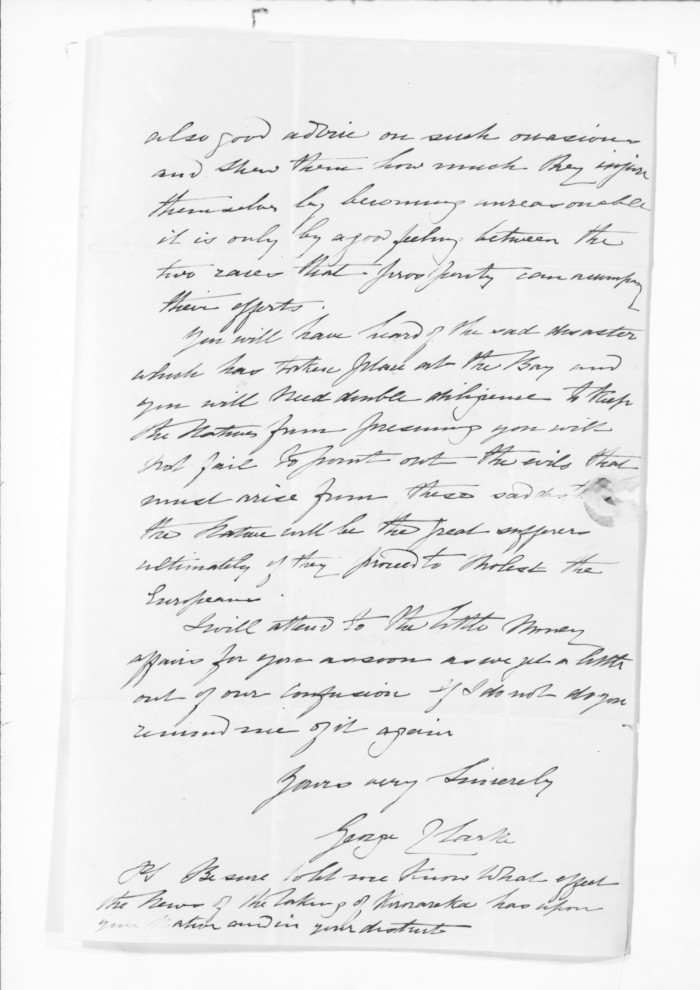 also good advice on such occasions
and shew them how much they injure
themselves by becoming unreasonable
it is only by a good feeling between the
two races that prosperity can accompany
their efforts.
You will have heard of the sad disaster
which has taken place at the Bay and
you will need double diligence to keep
the Natives from presuming you will
not fail to point out the evils that
must arise from these sad
the Native will be the great sufferers
ultimately if they proceed to Molest the
Europeans.
I will attend to the little Money
affairs for you as soon as we get a little
out of our Confusion if I do not do you
remind me of it again
Yours very Sincerely
George Clarke
PS Be sure to let me know What effect
the News of the taking of Kororareka has upon
your Native and in your district